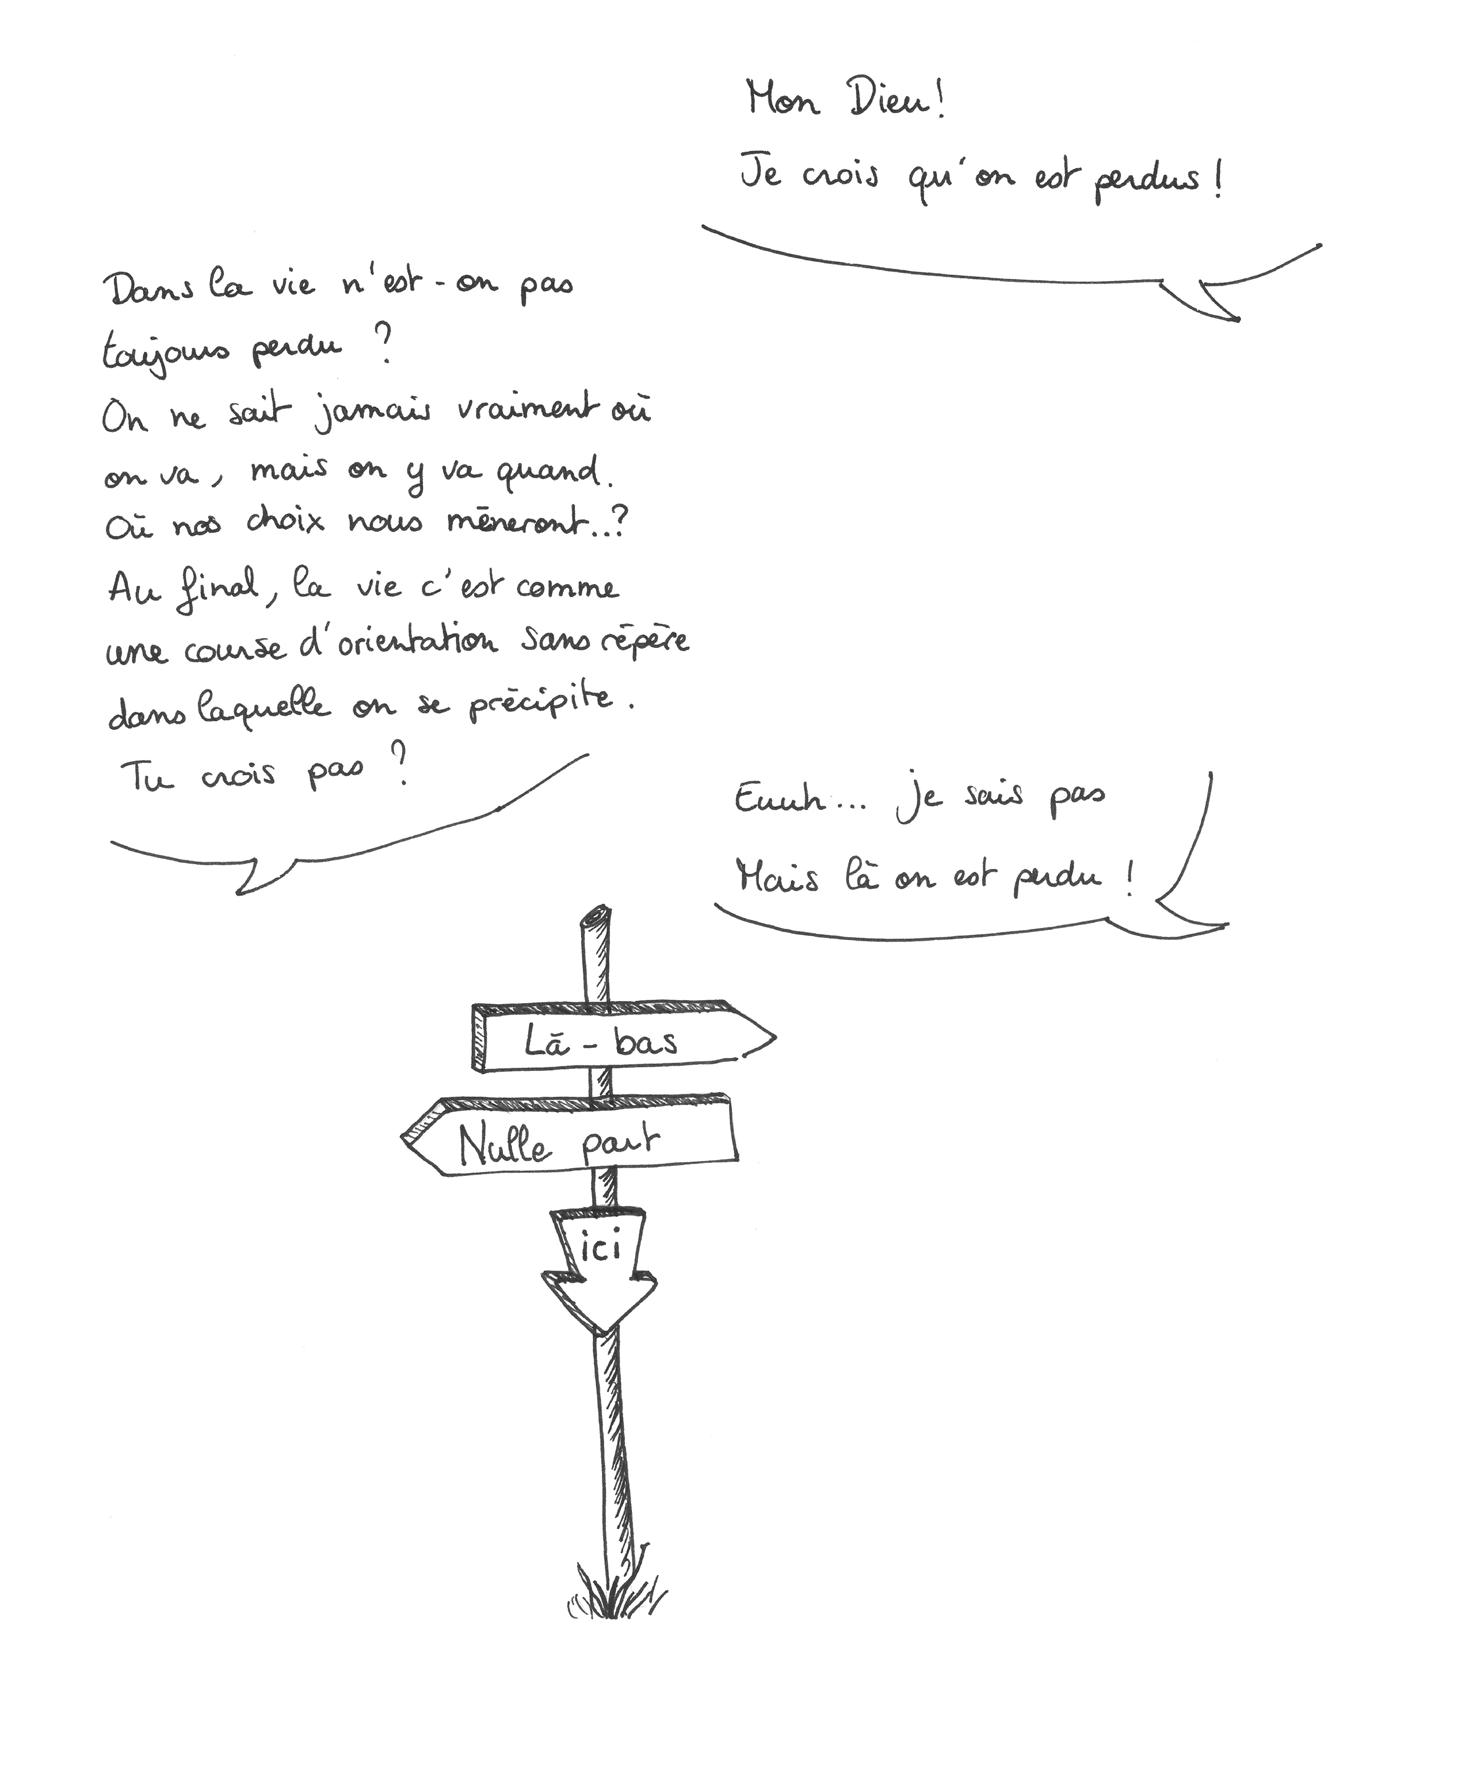 Mon Dieu!
Je crois qu'on est perdus!
Dans la vie n'est-on pas
toujours perdu ?
On ne sait jamais vraiment où
on va, mais on y va quand.
Où nos choix nous mèneront..?
Au final, la vie c'est comme
une course d'orientation sans répère
dans laquelle on se précipite.
Tu crois pas ?
Euuh... je sais pas
Mais là on est perdu !
Là-bas
Nulle part
ici